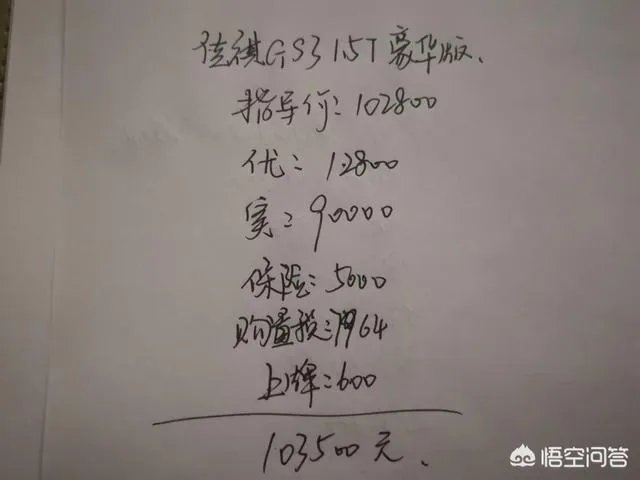 传祺GS3 1.5T 豪华版、
指导价: 102800
优: 12800
实: 90000
保险: 5000
购置税: 7964
上牌: 600
103500元、
悟空问答